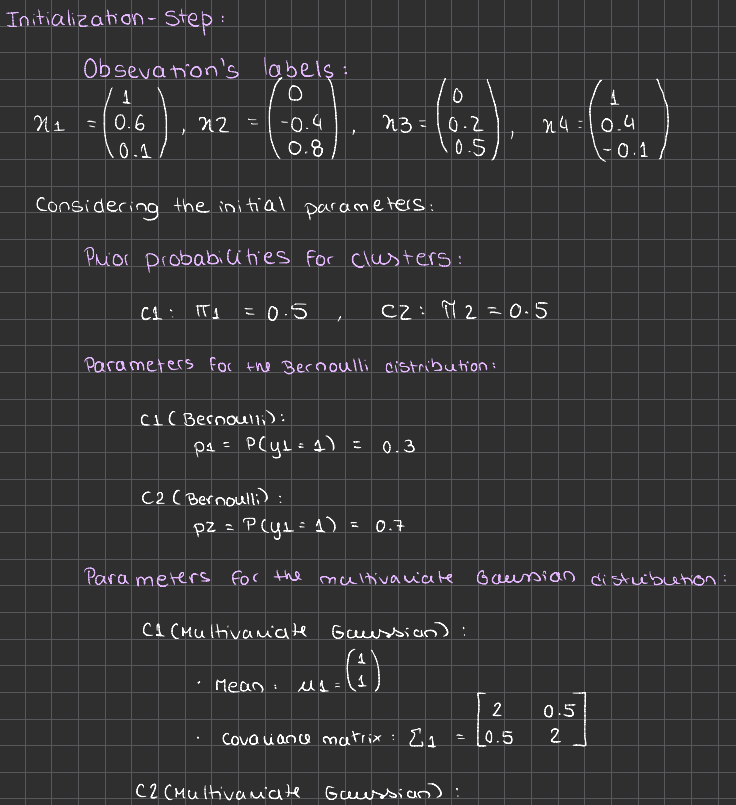 Initialization-Step:
Obsevation's labels:
x1 = (1 0.6 0.1), x2 = (0 -0.4 0.8), x3 = (0 0.2 0.5), x4 = (1 0.4 -0.1)
Considering the initial parameters:
Prior probabilities for clusters:
C1: π1 = 0.5 , C2: π2 = 0.5
Parameters for the Bernoulli distribution:
C1 (Bernoulli):
p1 = P(y1 = 1) = 0.3
C2 (Bernoulli):
p2 = P(y1 = 1) = 0.7
Parameters for the multivariate Gaussian distribution:
C1 (Multivariate Gaussian):
· Mean: μ1 = (1 1)
· Covariance matrix: Σ1 = [2 0.5 0.5 2]
C2 (Multivariate Gaussian):